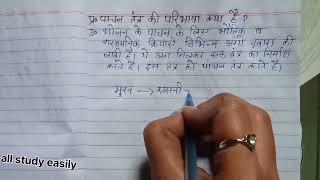 प्र० पाचन तंत्र की परिभाषा क्या है?
उ० भोजन के पाचन के लिए भौतिक व
रासायनिक क्रियाएं विभिन्न अंगो द्वारा की
जाती है। ये अंग मिलकर एक तंत्र का निर्माण
करते है। इस तंत्र को पाचन तंत्र कहते है।
मुख →
all study easily